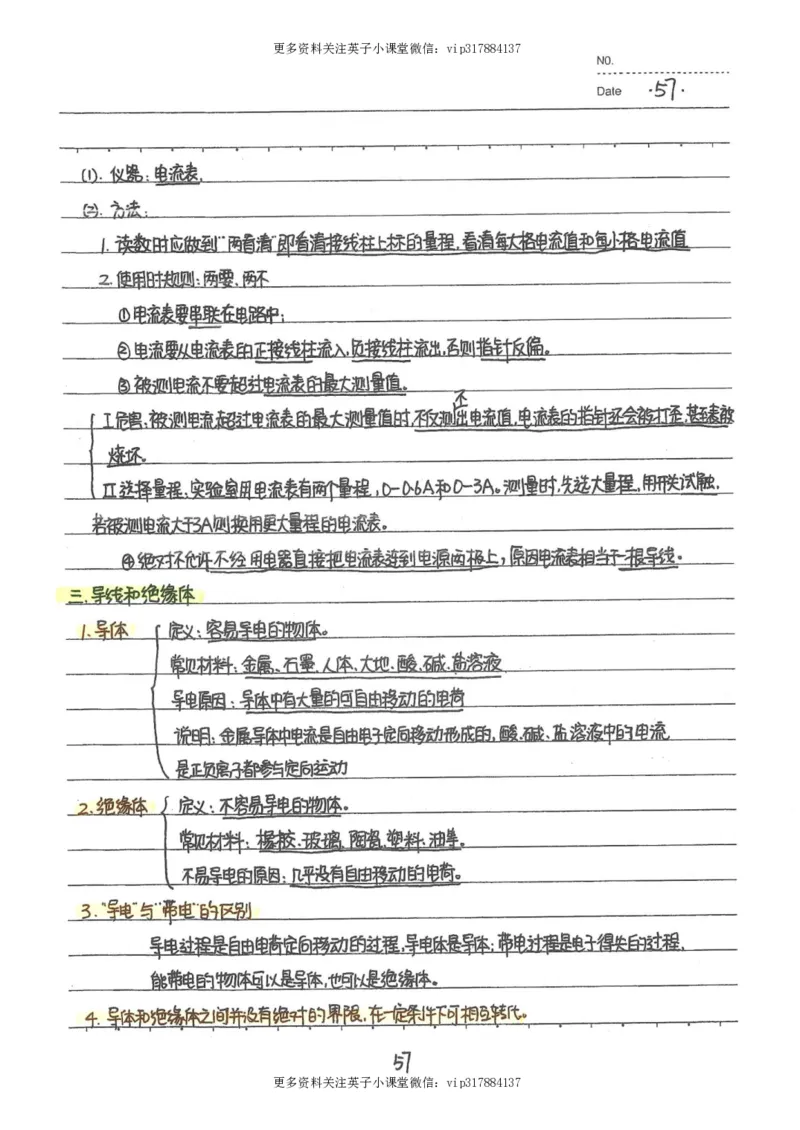 更多资料关注英子小课堂微信：vip317884137
NO.
Date ·57·
(1). 仪器：电流表.
(2). 方法：
1. 读数时应做到“两看清”即看清接线柱上标的量程，看清每大格电流值和每小格电流值
2. 使用时规则：两要、两不
①电流表要串联在电路中；
②电流要从电流表的正接线柱流入，负接线柱流出，否则指针反偏。
③被测电流不要超过电流表的最大测量值。
I 危害：被测电流超过电流表的最大测量值时，不仅测不出电流值，电流表的指针还会被打歪，甚至表被
烧坏。
II 选择量程：实验室用电流表有两个量程，0-0.6A和0-3A。测量时，先选大量程，用开关试触，
若被测电流大于3A则换用更大量程的电流表。
④绝对不允许不经用电器直接把电流表连到电源两极上，原因电流表相当于一根导线。
三.导线和绝缘体
1.导体 定义：容易导电的物体。
常见材料：金属、石墨、人体、大地、酸、碱、盐溶液
导电原因：导体中有大量的可自由移动的电荷
说明：金属导体中电流是自由电子定向移动形成的，酸、碱、盐溶液中的电流
是正负离子都参与定向运动
2.绝缘体 定义：不容易导电的物体。
常见材料：橡胶、玻璃、陶瓷、塑料、油等。
不易导电的原因：几乎没有自由移动的电荷。
3.“导电”与“带电”的区别
导电过程是自由电荷定向移动的过程，导电体是导体；带电过程是电子得失的过程，
能带电的物体可以是导体，也可以是绝缘体。
4. 导体和绝缘体之间并没有绝对的界限，在一定条件下可相互转化。
57
更多资料关注英子小课堂微信：vip317884137